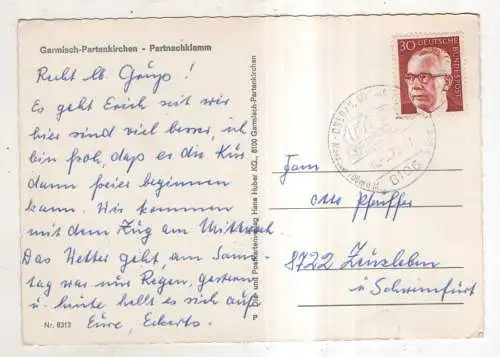 Garmisch-Partenkirchen - Partnachklamm
Recht lb. Grüße !
Es geht Erich seit wir
hier sind viel besser, ich
bin froh, daß er die Kur
dann freier beginnen
kann. Wir kommen
mit dem Zug am Mittwoch
Das Wetter geht, am Sams-
tag war nur Regen, gestern
u. heute hellt es sich auf.
Eure, Eckerts.
Nr. 6313
Hans Huber KG., 8100 Garmisch-Partenkirchen
30 DEUTSCHE
BUNDESPOST
8106
Fam
Otto Pfeiffer
8722 Zeuzleben
ü Schweinfurt